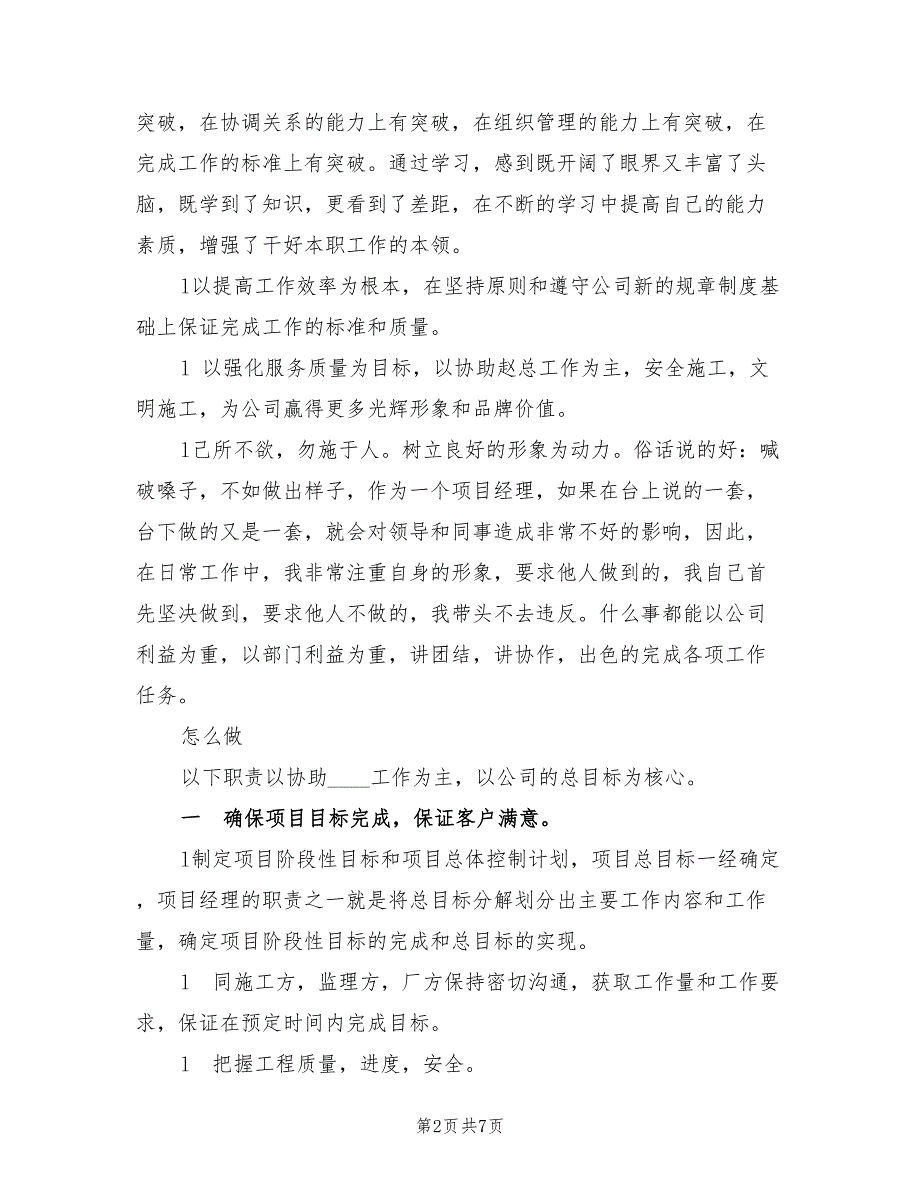 突破，在协调关系的能力上有突破，在组织管理的能力上有突破，在
完成工作的标准上有突破。通过学习，感到既开阔了眼界又丰富了头
脑，既学到了知识，更看到了差距，在不断的学习中提高自己的能力
素质，增强了干好本职工作的本领。
1以提高工作效率为根本，在坚持原则和遵守公司新的规章制度基
础上保证完成工作的标准和质量。
1 以强化服务质量为目标，以协助赵总工作为主，安全施工，文
明施工，为公司赢得更多光辉形象和品牌价值。
1己所不欲，勿施于人。树立良好的形象为动力。俗话说的好：喊
破嗓子，不如做出样子，作为一个项目经理，如果在台上说的一套，
台下做的又是一套，就会对领导和同事造成非常不好的影响，因此，
在日常工作中，我非常注重自身的形象，要求他人做到的，我自己首
先坚决做到，要求他人不做的，我带头不去违反。什么事都能以公司
利益为重，以部门利益为重，讲团结，讲协作，出色的完成各项工作
任务。
怎么做
以下职责以协助____工作为主，以公司的总目标为核心。
一 确保项目目标完成，保证客户满意。
1制定项目阶段性目标和项目总体控制计划，项目总目标一经确定
，项目经理的职责之一就是将总目标分解划分出主要工作内容和工作
量，确定项目阶段性目标的完成和总目标的实现。
1 同施工方，监理方，厂方保持密切沟通，获取工作量和工作要
求，保证在预定时间内完成目标。
1 把握工程质量，进度，安全。
第2页共7页